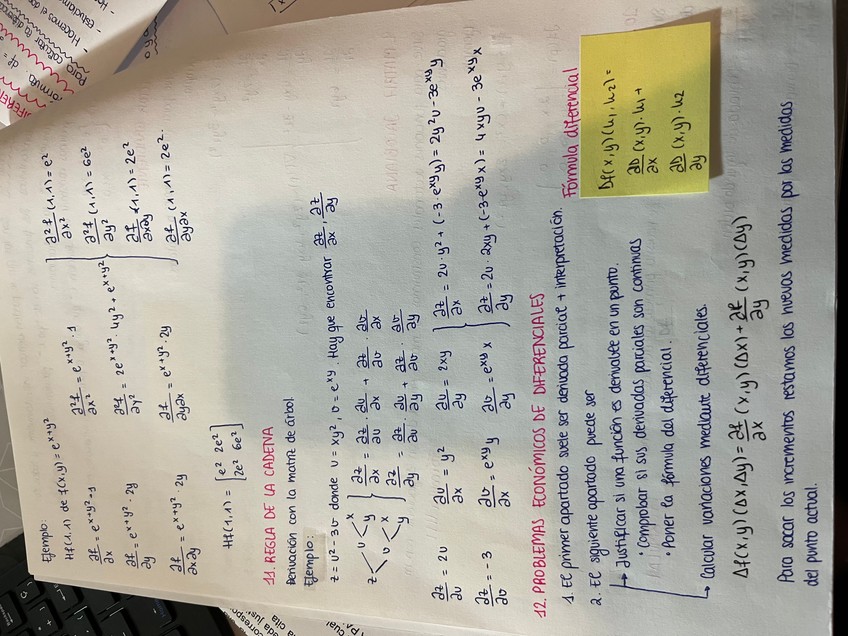 Ejemplo:
Hf(1,1) de f(x,y) = e^x+y²
∂f/∂x = e^x+y² · 1
∂²f/∂x² = e^x+y² · 1
∂²f/∂x² (1,1) = e²
∂f/∂y = e^x+y² · 2y
∂²f/∂y² = 2e^x+y² · 4y² + e^x+y²
∂²f/∂y² (1,1) = 6e²
∂f/∂x∂y = e^x+y² · 2y
∂f/∂y∂x = e^x+y² · 2y
∂f/∂x∂y (1,1) = 2e²
∂f/∂y∂x (1,1) = 2e².
Hf(1,1) = [e² 2e²
2e² 6e²]
11. REGLA DE LA CADENA
Derivación con la matriz de árbol.
Ejemplo:
z = u² - 3v donde u = xy², v = e^xy. Hay que encontrar ∂z/∂x, ∂z/∂y
z < u < x y
v < x y
∂z/∂x = ∂z/∂u · ∂u/∂x + ∂z/∂v · ∂v/∂x
∂z/∂y = ∂z/∂u · ∂u/∂y + ∂z/∂v · ∂v/∂y
∂z/∂u = 2u ∂u/∂x = y² ∂u/∂y = 2xy } ∂z/∂x = 2u · y² + (-3 · e^xy y) = 2y²u - 3e^xy y
∂z/∂v = -3 ∂v/∂x = e^xy y ∂v/∂y = e^xy x } ∂z/∂y = 2u · 2xy + (-3 · e^xy x) = 4xyu - 3e^xy x
12. PROBLEMAS ECONÓMICOS DE DIFERENCIALES
1. El primer apartado suele ser derivada parcial + interpretación.
2. El siguiente apartado puede ser
↳ Justificar si una función es derivable en un punto.
· Comprobar si sus derivadas parciales son continuas
· Poner la fórmula del diferencial.
↳ Calcular variaciones mediante diferenciales.
Δf(x,y)(Δx,Δy) = ∂f/∂x (x,y)(Δx) + ∂f/∂y (x,y)(Δy)
Para sacar los incrementos restamos las nuevas medidas por las medidas
del punto actual.
Fórmula diferencial
Df(x,y)(h1,h2) =
∂D/∂x (x,y) · h1 +
∂D/∂y (x,y) · h2